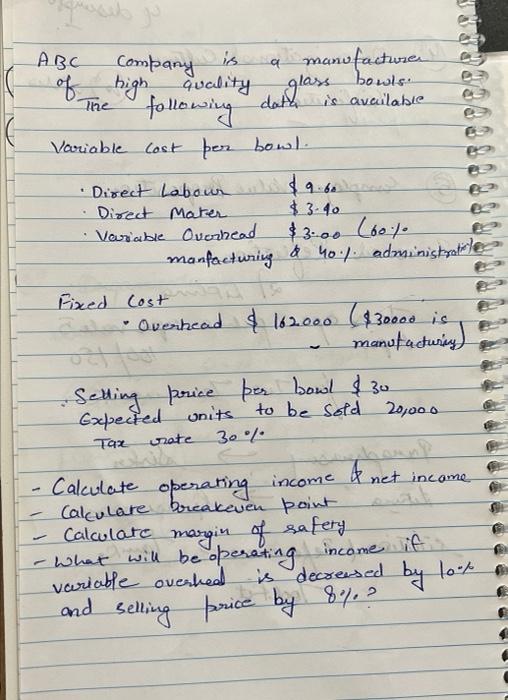 ABC Company is a manufacturer
of high quality glass bowls.
The following data is available
Variable cost per bowl.
· Direct Labour $ 9.60
· Direct Mater $ 3.40
· Variable Overhead $ 3.00 (60%
manfacturing & 40% administration)
Fixed Cost
· Overhead $ 162000 ($30000 is
manufacturing)
. Selling price per bowl $ 30
Expected units to be sold 20,000
Tax rate 30%
- Calculate operating income & net income
- Calculate Breakeven point
- Calculate margin of safety
- What will be operating income if
variable overhead is decreased by 10%
and selling price by 8%?